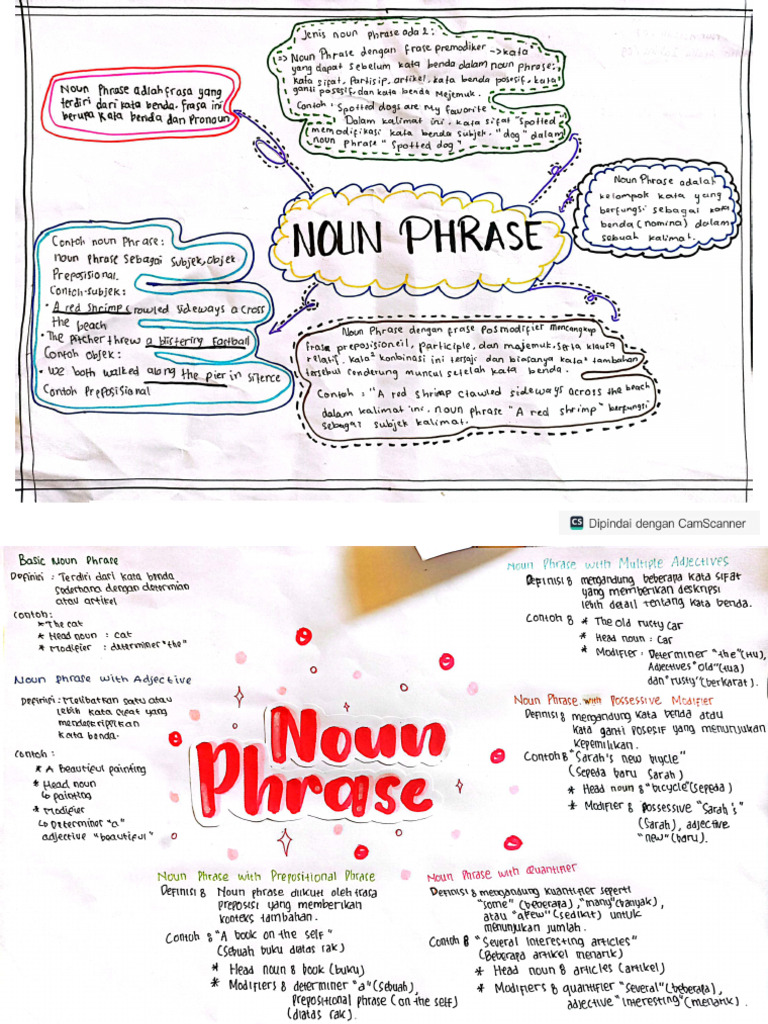 NOUN PHRASE
Noun Phrase adlah frasa yang
terdiri dari kata benda. Frasa ini
berupa Kata benda dan Pronoun
Jenis noun phrase ada 2:
=> Noun Phrase dengan frase premodiker -> kata
yang dapat sebelum kata benda dalam noun phrase:
kata sifat, Partisip, artikel, kata benda posesif, kata
ganti posesif, dan kata benda Mejemuk.
Contoh: Spotted dogs are My favorite
Dalam kalimat ini, kata sifat "Spotted"
memodifikasi kata benda subjek. "dog" dalam
noun phrase "Spotted dog"
Noun Phrase adalah
kelompok kata yang
berfungsi sebagai kata
benda (nomina) dalam
sebuah kalimat.
Contoh noun Phrase:
noun phrase Sebagai Subjek, Objek
Preposisional.
Contoh subjek:
• A red shrimp crowled sideways a cross
the beach
• The Pitcher threw a blistering fastball
Contoh objek:
• We both walked along the pier in silence
Contoh Preposisional
Noun Phrase dengan frase Posmodifier mencangkup
frase preposisioneil, participle, dan majemuk, serta klausa
relatif. kata² konbinasi ini tersaji dan biasanya kata² tambahan
tersebut cenderung muncul setelah kata benda.
Contoh: "A red shrimp clawled sideways across the beach
dalam kalimat ini. noun phrase "A red shrimp" berfungsi
sebagai subjek kalimat.
CS Dipindai dengan CamScanner
Noun
Phrase
Basic Noun Phrase
Definisi : Terdiri dari kata benda
sederhana dengan determian
atau artikel
Contoh:
* The cat
* Head noun : cat
* Modifier : determiner "the"
Noun phrase with Adjective
Definisi : Melibatkan satu atau
lebih kata sifat yang
mendeskripsikan
kata benda.
Contoh :
* A Beautiful painting
* Head noun
↳ painting
* Modifier
↳ Determiner "a"
adjective "beautiful"
Noun Phrase with Multiple Adjectives
Definisi 8 mengandung beberapa kata sifat
yang memberikan deskripsi
lebih detail tentang kata benda.
Contoh 8 * The old rusty car
* Head noun : Car
* Modifier : Determiner "the" (itu),
Adjectives "old" (tua)
dan "rusty" (berkarat).
Noun Phrase with Possessive Modifier
Definisi 8 mengandung kata benda atau
kata ganti posesif yang menunjukan
kepemilikan.
Contoh 8 "Sarah's new bicycle"
(Sepeda baru Sarah)
* Head noun 8 "bicycle" (sepeda)
* Modifier 8 possessive "Sarah's"
(Sarah), adjective
"new" (baru).
Noun Phrase with Prepositional Phrase
Definisi 8 Noun phrase diikuti oleh frasa
preposisi yang memberikan
konteks tambahan.
Contoh 8 "A book on the self"
(Sebuah buku diatas rak)
* Head noun 8 book (buku)
* Modifiers 8 determiner "a" (sebuah),
prepositional phrase (on the self)
(diatas rak).
Noun Phrase with Quantifier
Definisi 8 mengandung kuantifier seperti
"some" (beberapa), "many" (banyak),
atau "a few" (sedikit) untuk
menunjukan jumlah.
Contoh 8 "Several interesting articles"
(Beberapa artikel menarik)
* Head noun 8 articles (artikel)
* Modifiers 8 quantifier "several" (beberapa),
adjective "interesting" (menarik).